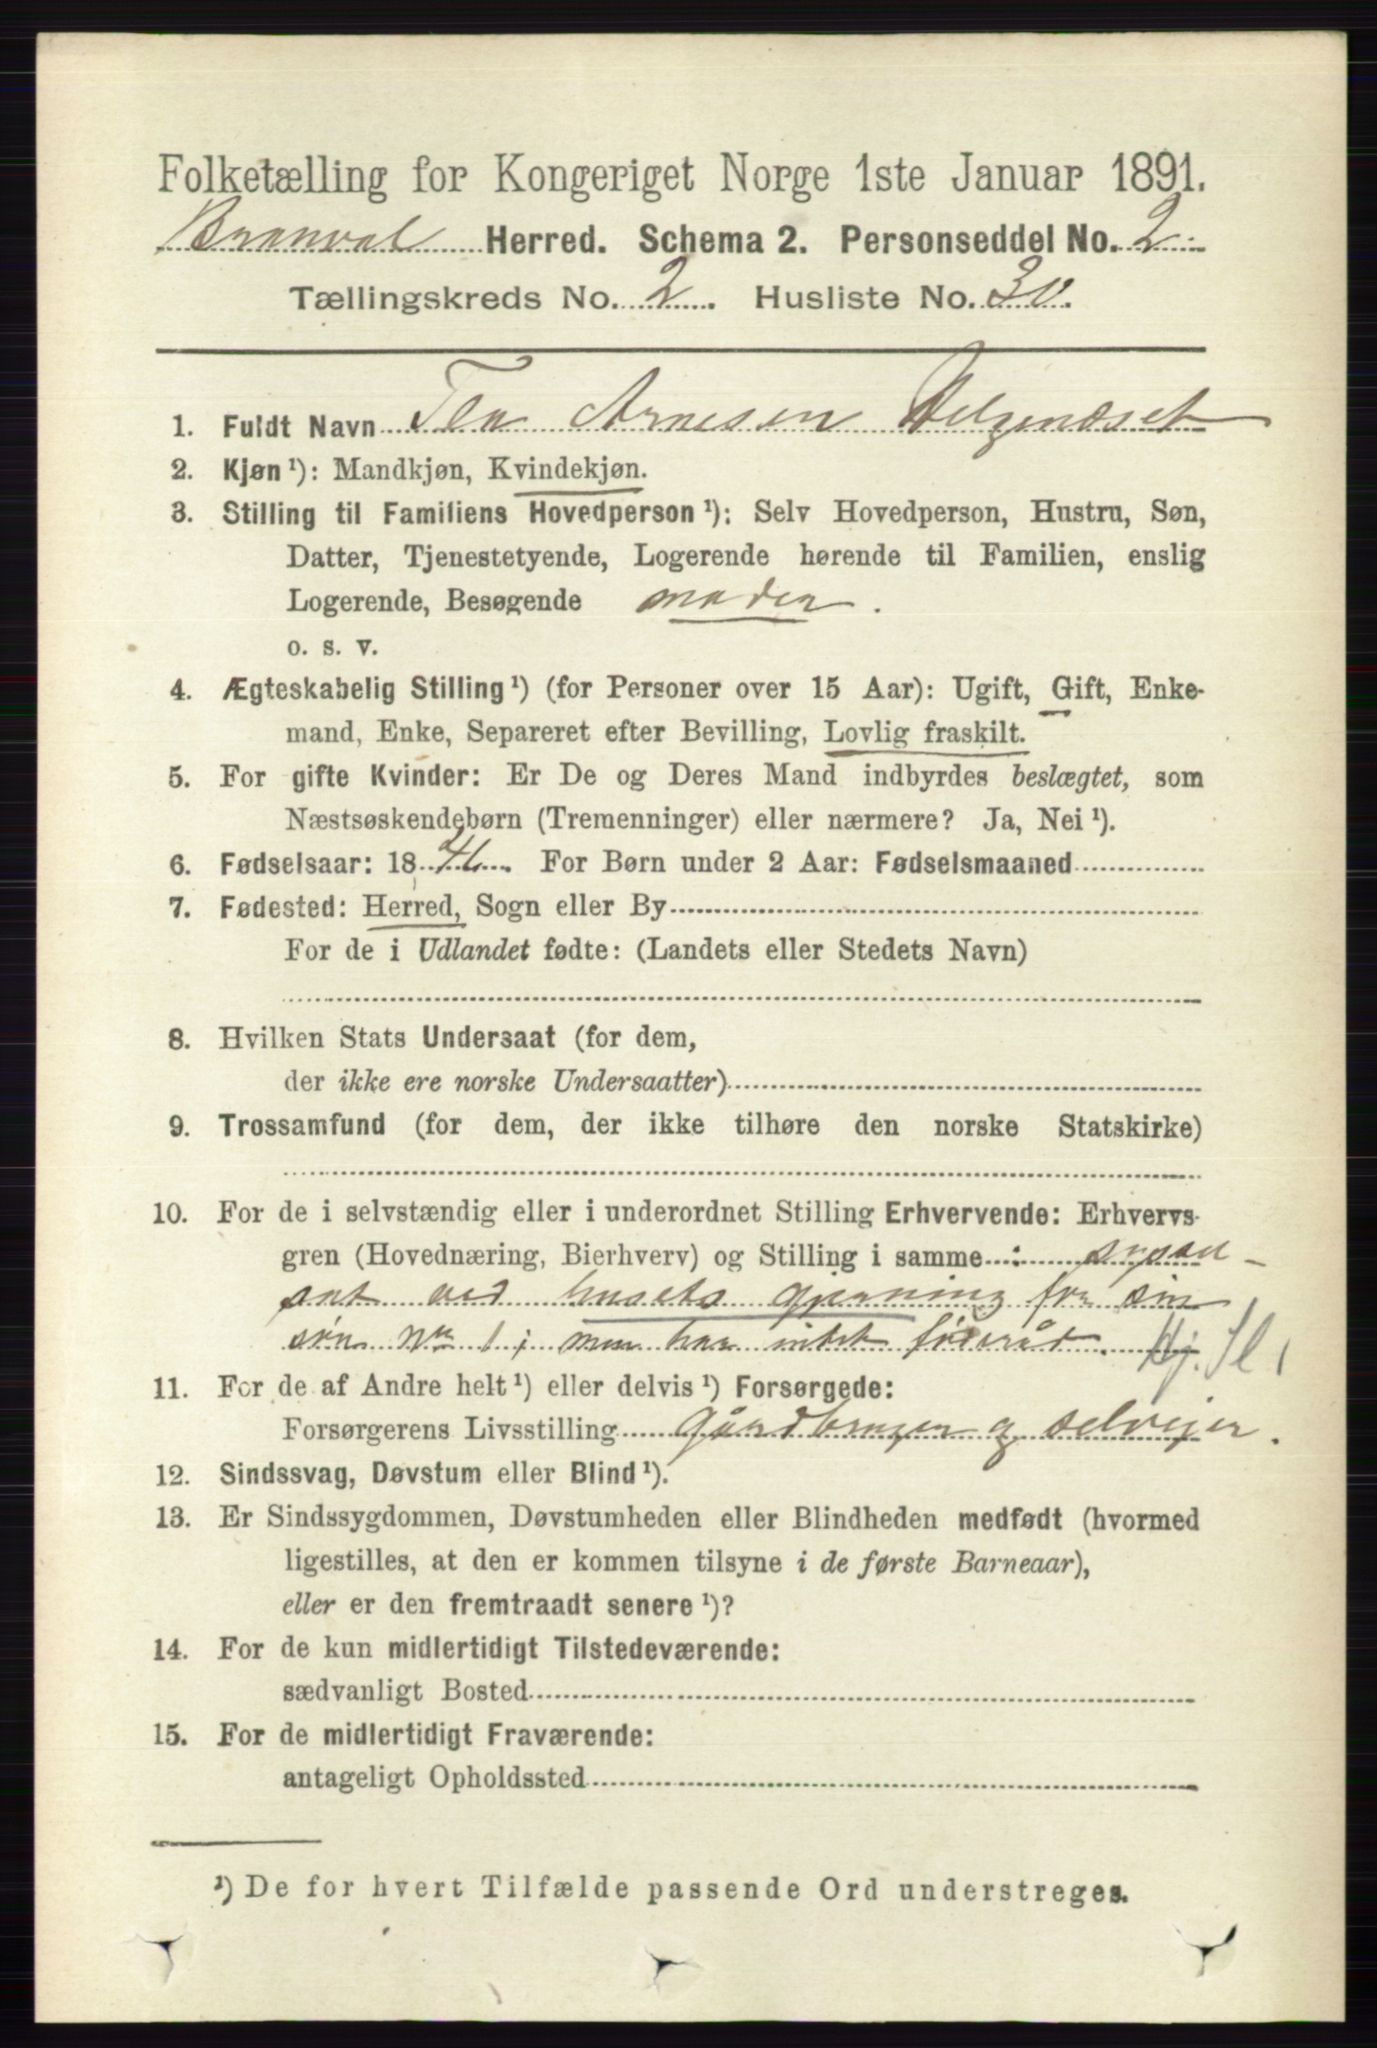 Folketælling for Kongeriget Norge 1ste Januar 1891.
Branval Herred. Schema 2. Personseddel No. 2.
Tællingskreds No. 2. Husliste No. 30.
1. Fuldt Navn Tea Arnesen Helgenæset
2. Kjøn ¹): Mandkjøn, Kvindekjøn.
3. Stilling til Familiens Hovedperson ¹): Selv Hovedperson, Hustru, Søn,
Datter, Tjenestetyende, Logerende hørende til Familien, enslig
Logerende, Besøgende moder.
o. s. v.
4. Ægteskabelig Stilling ¹) (for Personer over 15 Aar): Ugift, Gift, Enke-
mand, Enke, Separeret efter Bevilling, Lovlig fraskilt.
5. For gifte Kvinder: Er De og Deres Mand indbyrdes beslægtet, som
Næstsøskendebørn (Tremenninger) eller nærmere? Ja, Nei ¹).
6. Fødselsaar: 1846. For Børn under 2 Aar: Fødselsmaaned
7. Fødested: Herred, Sogn eller By
For de i Udlandet fødte: (Landets eller Stedets Navn)
8. Hvilken Stats Undersaat (for dem,
der ikke ere norske Undersaatter)
9. Trossamfund (for dem, der ikke tilhøre den norske Statskirke)
10. For de i selvstændig eller i underordnet Stilling Erhvervende: Erhvervs-
gren (Hovednæring, Bierhverv) og Stilling i samme : sysel-
sat ved husets gjerning for sin
søn No 1; men har intet føderåd. Hj. Sl 1
11. For de af Andre helt ¹) eller delvis ¹) Forsørgede:
Forsørgerens Livsstilling Gårdbruger og selveier.
12. Sindssvag, Døvstum eller Blind ¹).
13. Er Sindssygdommen, Døvstumheden eller Blindheden medfødt (hvormed
ligestilles, at den er kommen tilsyne i de første Barneaar),
eller er den fremtraadt senere ¹)?
14. For de kun midlertidigt Tilstedeværende:
sædvanligt Bosted
15. For de midlertidigt Fraværende:
antageligt Opholdssted
¹) De for hvert Tilfælde passende Ord understreges.